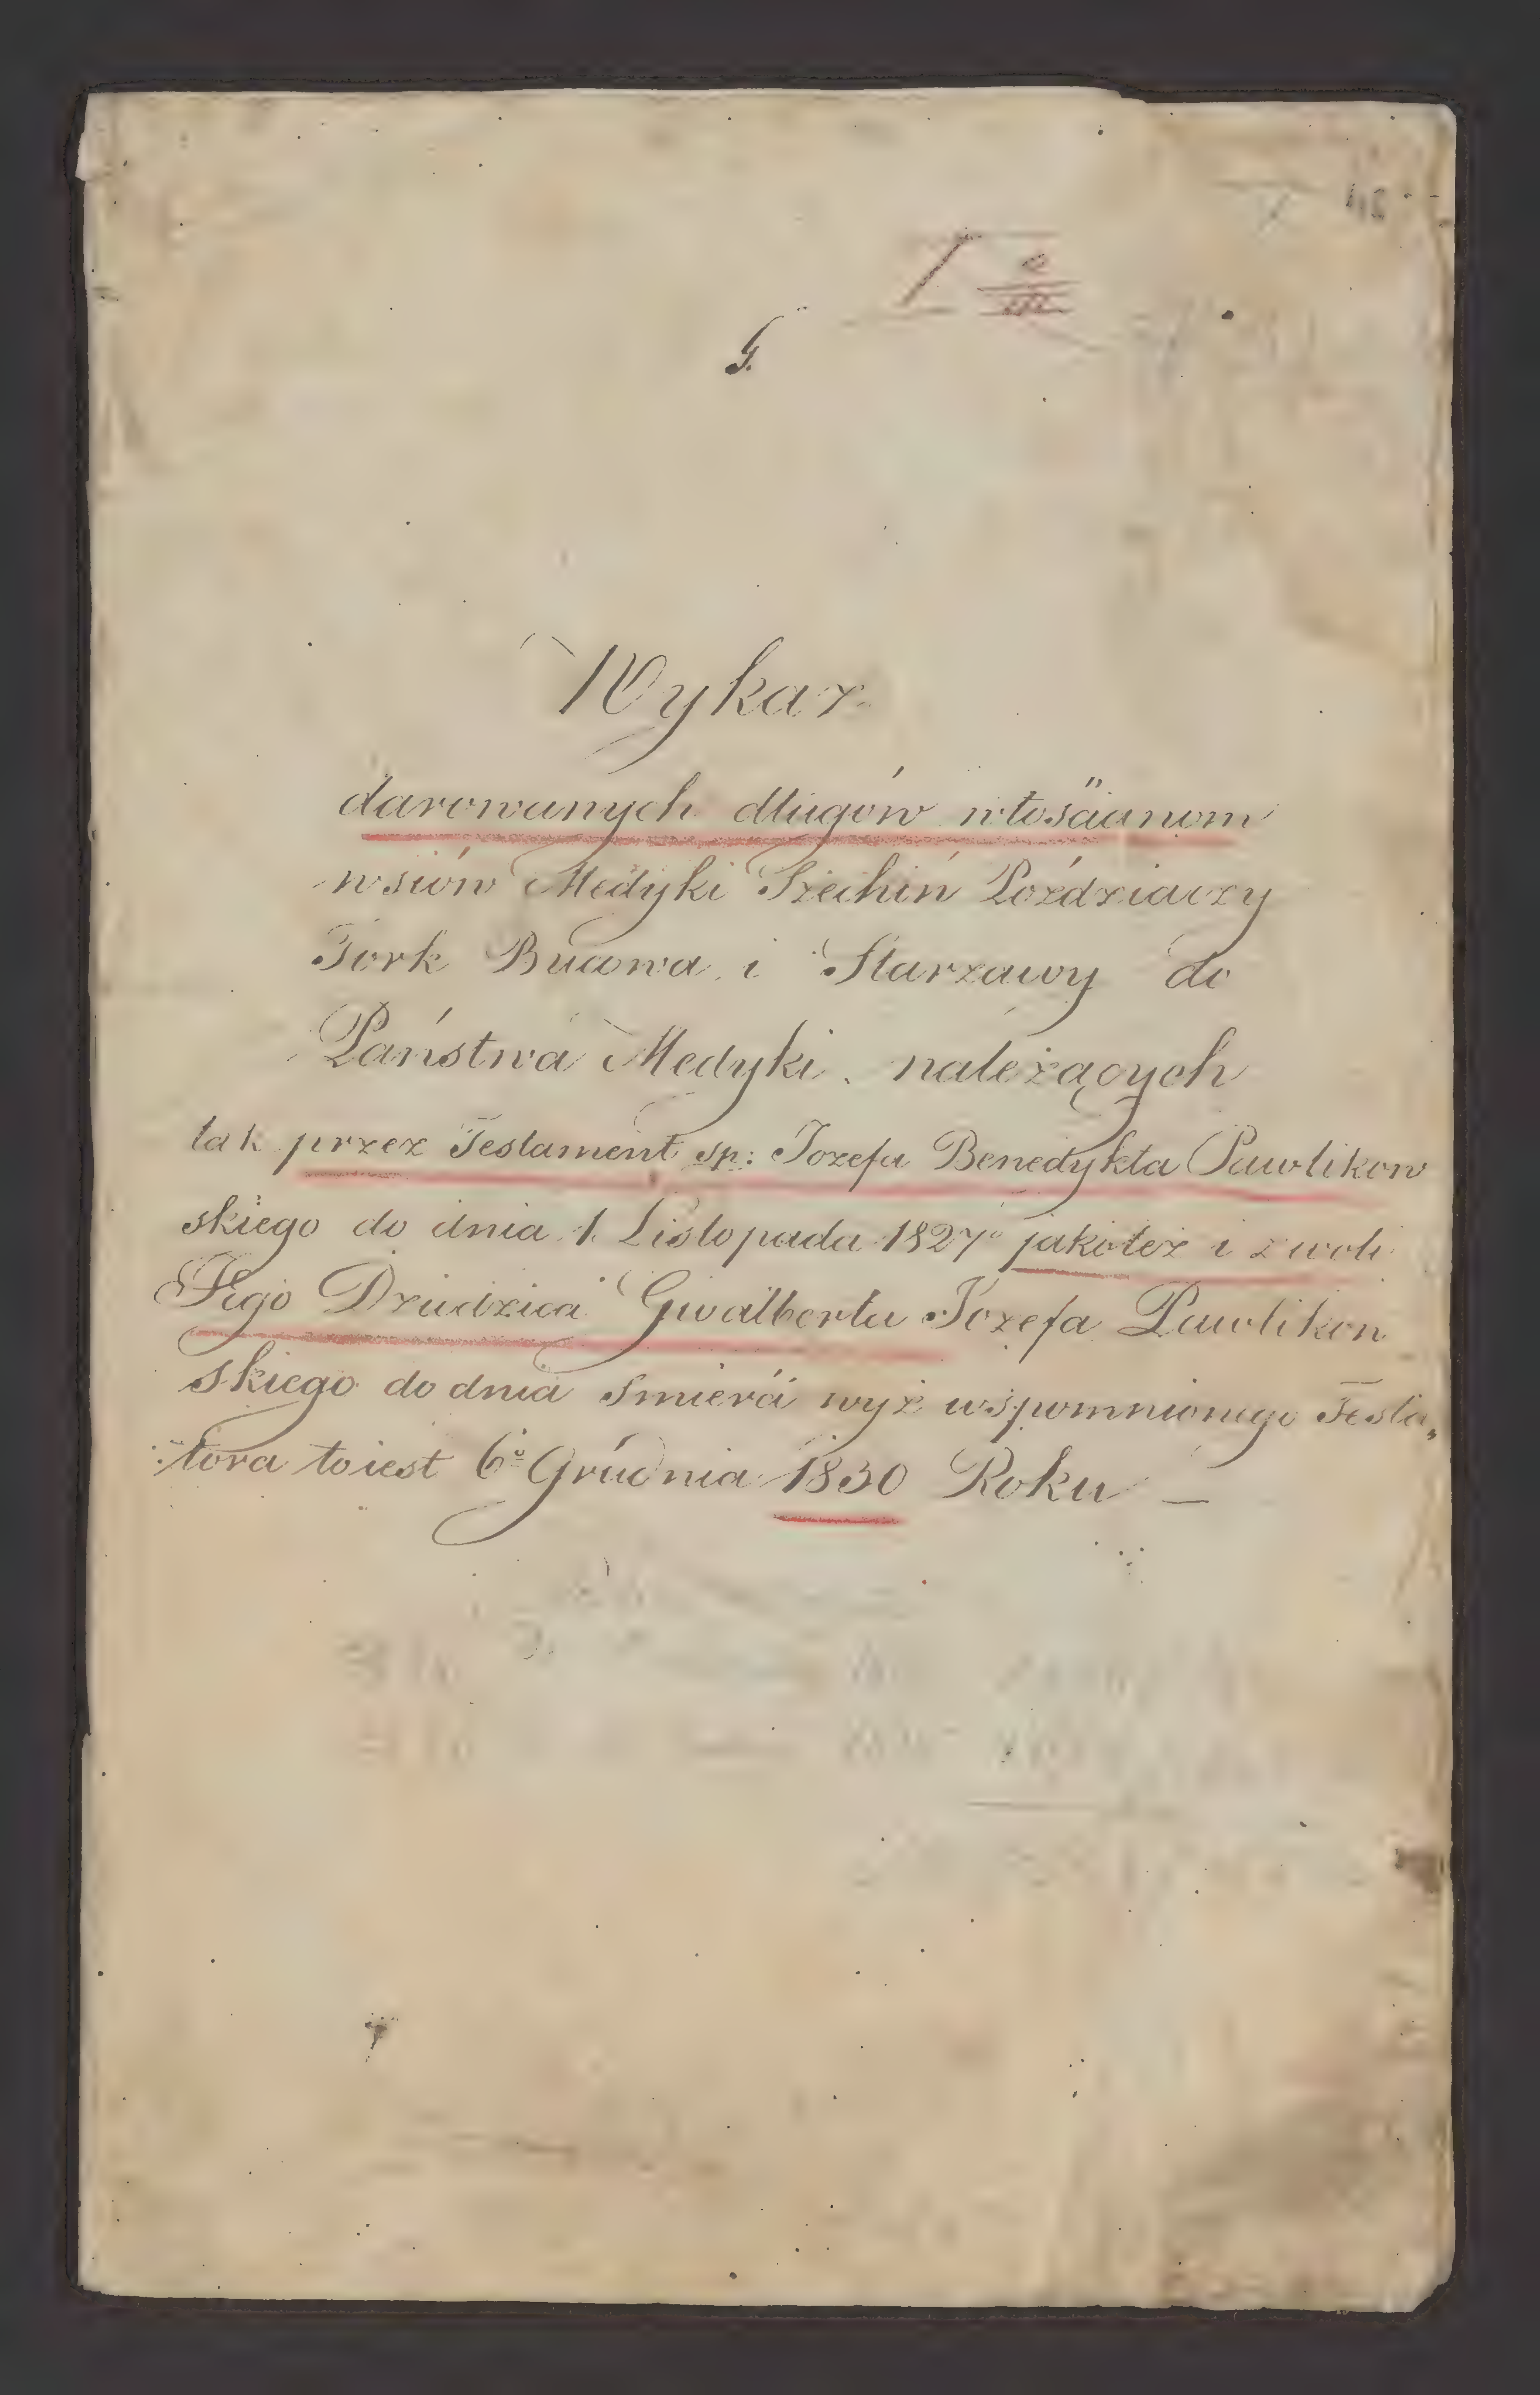 G.
Wykaz
darowanych długów włościanom
wsiów Medyki Szechiń Poździaczy
Tork Bucowa i Starzawy do
Państwa Medyki należących
tak przez Testament sp: Jozefa Benedykta Pawlikow
skiego do dnia 1. Listopada 1827º jakoteż i z woli
Jego Dziedzica Gwalberta Jozefa Pawlikow
skiego do dnia smierći wyż wspomnionego Testa„
tora toiest 6º Grudnia 1830 Roku —